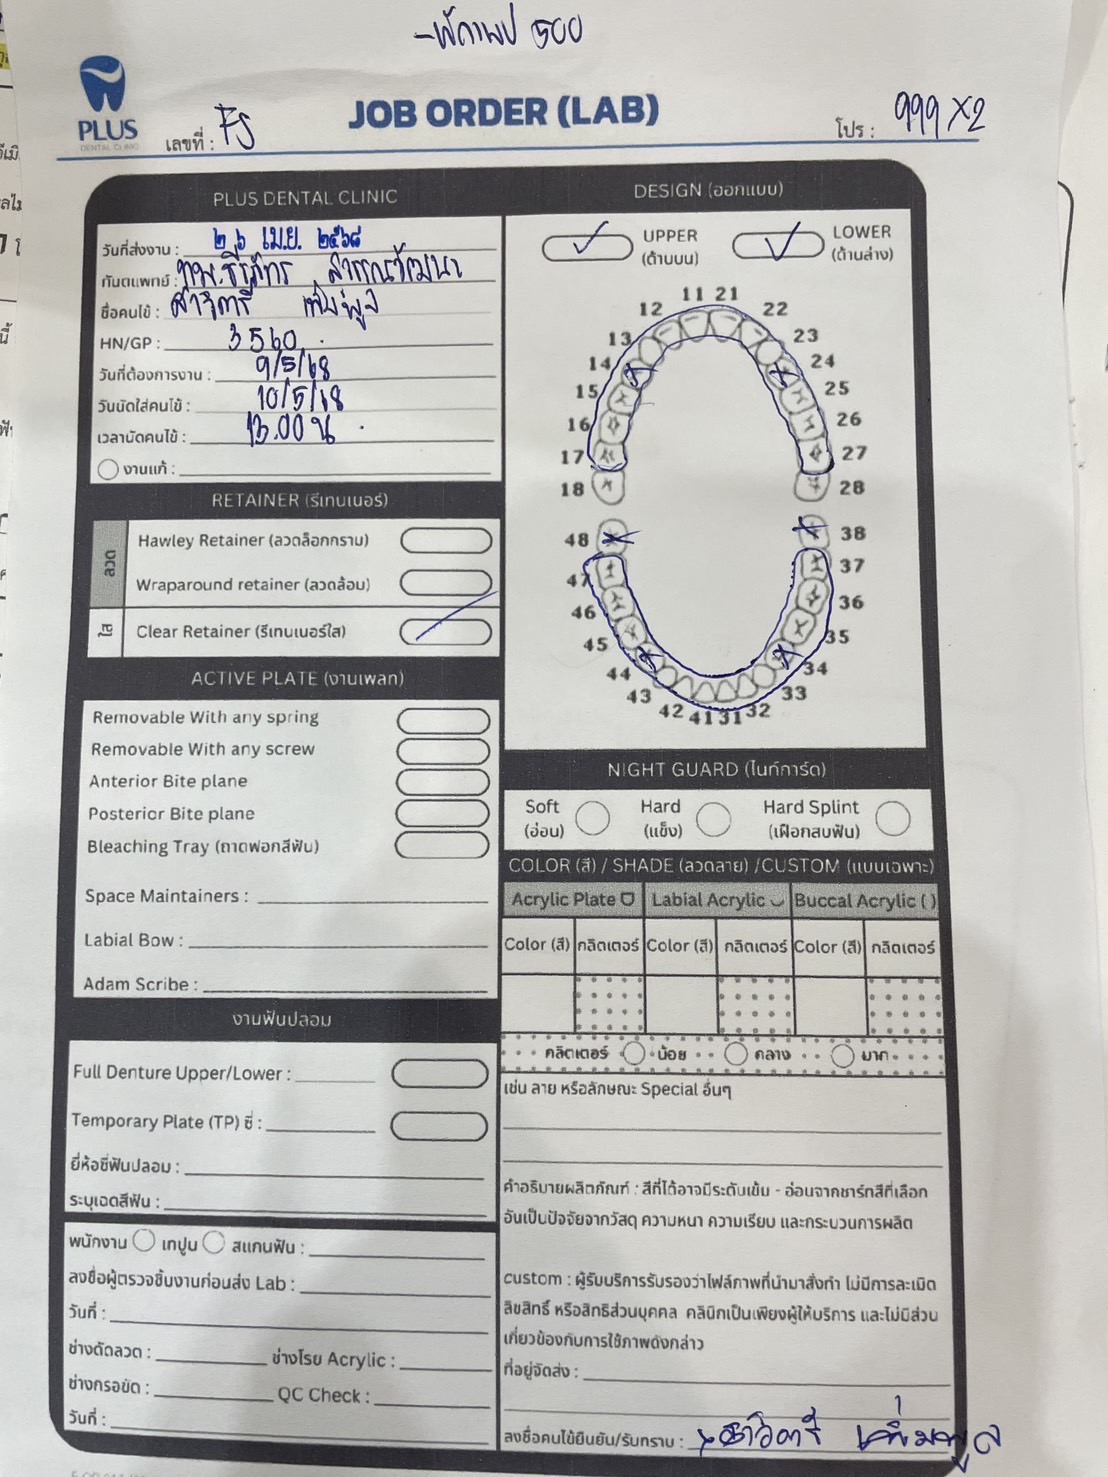 PLUS
DENTAL CLINIC
เลขที่ : FS
JOB ORDER (LAB)
โปร : 999 X2
PLUS DENTAL CLINIC
วันที่ส่งงาน : ๒๖ เม.ย. ๒๕๖๘
ทันตแพทย์ :
ชื่อคนไข้ : สาวิตารี เพิ่มพูล
HN/GP : 3560
วันที่ต้องการงาน : 9/5/68
วันนัดใส่คนไข้ : 10/5/68
เวลานัดคนไข้ : 13.00 น
งานแก้ :
RETAINER (รีเทนเนอร์)
ลวด
Hawley Retainer (ลวดล็อกกราม)
Wraparound retainer (ลวดล้อม)
ใส
Clear Retainer (รีเทนเนอร์ใส)
ACTIVE PLATE (งานเพลท)
Removable With any spring
Removable With any screw
Anterior Bite plane
Posterior Bite plane
Bleaching Tray (ถาดฟอกสีฟัน)
Space Maintainers :
Labial Bow :
Adam Scribe :
งานฟันปลอม
Full Denture Upper/Lower :
Temporary Plate (TP) ซี่ :
ยี่ห้อซี่ฟันปลอม :
ระบุเฉดสีฟัน :
พนักงาน เทปูน สแกนฟัน :
ลงชื่อผู้ตรวจชิ้นงานก่อนส่ง Lab :
วันที่ :
ช่างดัดลวด : ช่างโรย Acrylic :
ช่างกรอขัด : QC Check :
วันที่ :
DESIGN (ออกแบบ)
UPPER
(ด้านบน)
LOWER
(ด้านล่าง)
11 21
12 22
13 23
14 24
15 25
16 26
17 27
18 28
48 38
47 37
46 36
45 35
44 34
43 33
42 41 31 32
NIGHT GUARD (ไนท์การ์ด)
Soft
(อ่อน)
Hard
(แข็ง)
Hard Splint
(เฝือกสบฟัน)
COLOR (สี) / SHADE (ลวดลาย) /CUSTOM (แบบเฉพาะ)
Acrylic Plate Labial Acrylic Buccal Acrylic ( )
Color (สี) กลิตเตอร์ Color (สี) กลิตเตอร์ Color (สี) กลิตเตอร์
กลิตเตอร์ น้อย กลาง มาก
เช่น ลาย หรือลักษณะ Special อื่นๆ
คำอธิบายผลิตภัณฑ์ : สีที่ได้อาจมีระดับเข้ม - อ่อนจากชาร์ทสีที่เลือก
อันเป็นปัจจัยจากวัสดุ ความหนา ความเรียบ และกระบวนการผลิต
custom : ผู้รับบริการรับรองว่าไฟล์ภาพที่นำมาสั่งทำ ไม่มีการละเมิด
ลิขสิทธิ์ หรือสิทธิส่วนบุคคล คลินิกเป็นเพียงผู้ให้บริการ และไม่มีส่วน
เกี่ยวข้องกับการใช้ภาพดังกล่าว
ที่อยู่จัดส่ง :
ลงชื่อคนไข้ยืนยัน/รับทราบ : สาวิตารี เพิ่มพูล